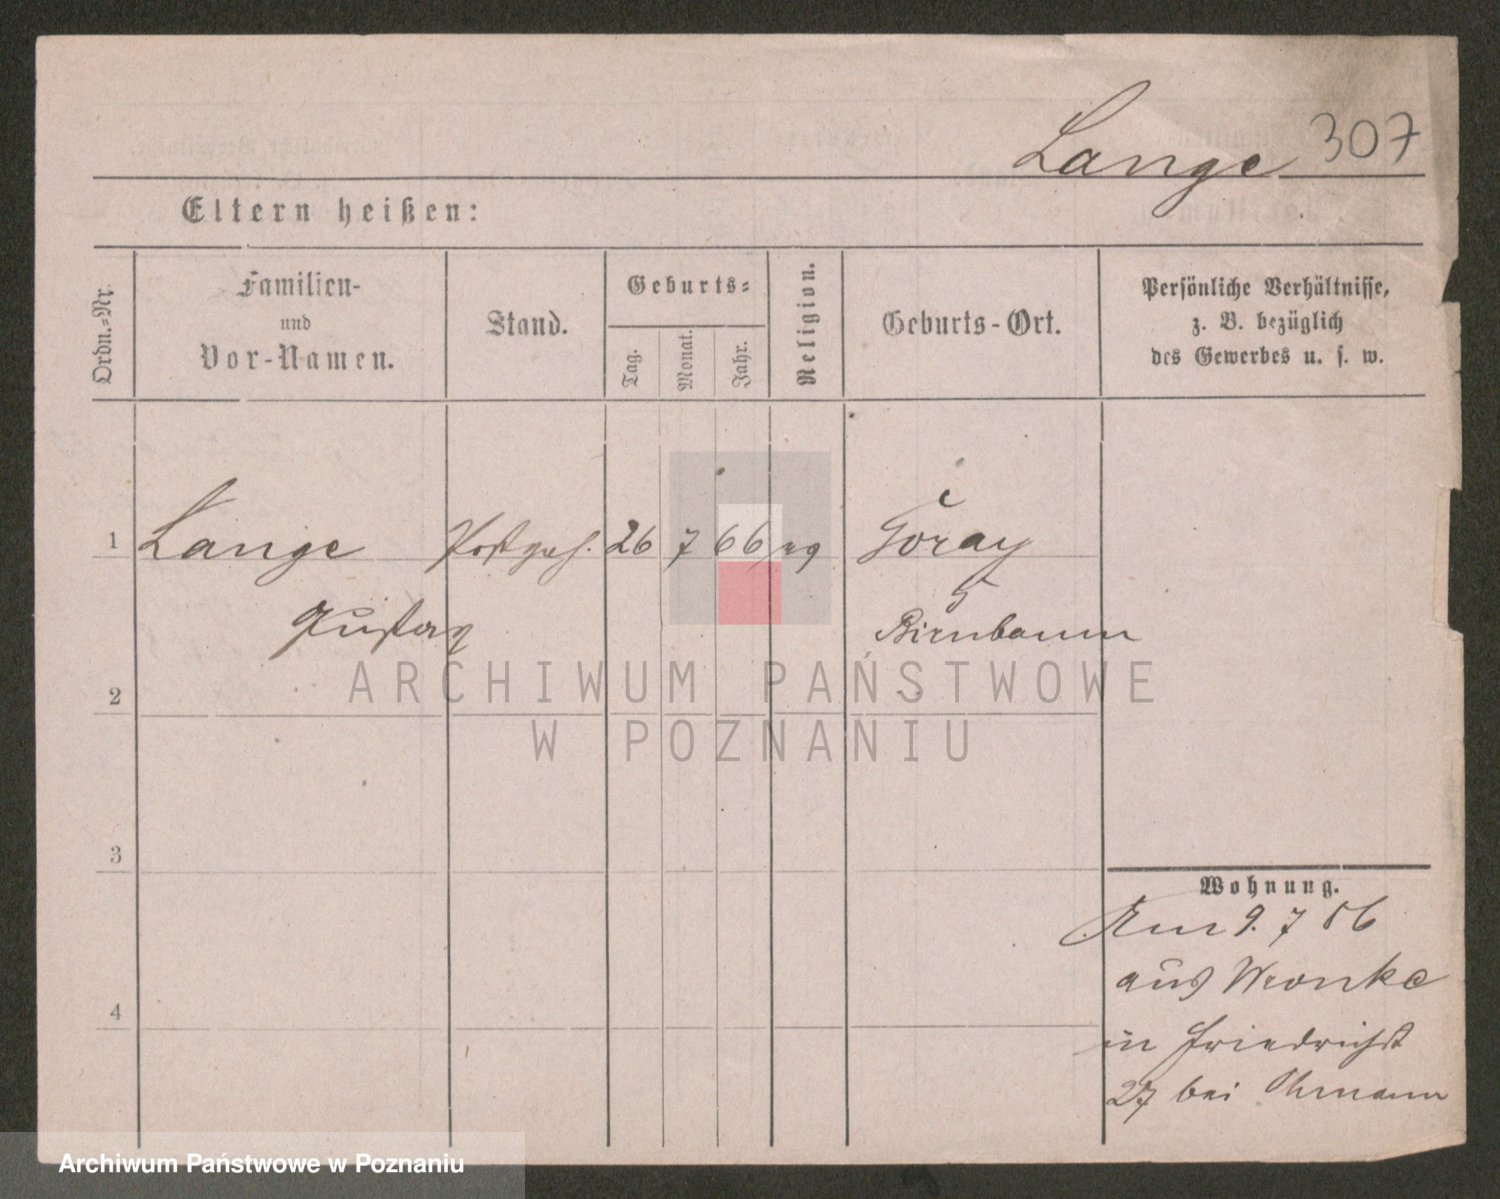 Lange 307
Eltern heißen:
Ordn.=Nr.
Familien-
und
Vor-Namen.
Stand.
Geburts=
Tag.
Monat.
Jahr.
Religion.
Geburts-Ort.
Persönliche Verhältnisse,
z. B. bezüglich
des Gewerbes u. s. w.
1 Lange Postgeh. 26 7 66 ev Goray
Gustav Birnbaum
2
3
4
Wohnung.
Am 9. 7 86
aus Wronke
in Friedrichst
27 bei Ohmann
ARCHIWUM PAŃSTWOWE
W POZNANIU
Archiwum Państwowe w Poznaniu